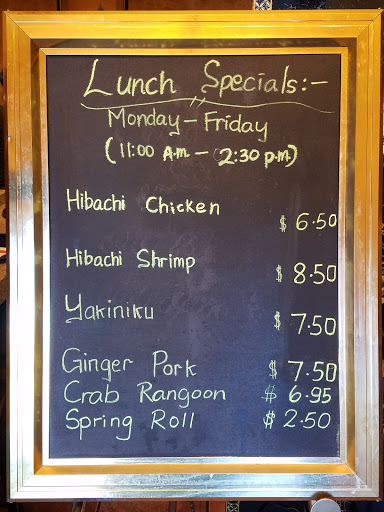 Lunch Specials:-
Monday - Friday
(11:00 A.m. - 2:30 p.m.)
Hibachi Chicken $ 6.50
Hibachi Shrimp $ 8.50
Yakiniku $ 7.50
Ginger Pork $ 7.50
Crab Rangoon $ 6.95
Spring Roll $ 2.50